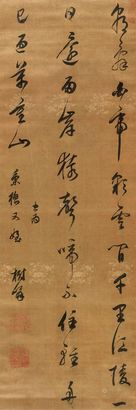 朝辭白帝彩雲間千里江陵一
日還兩岸猿聲啼不住輕舟
已過萬重山